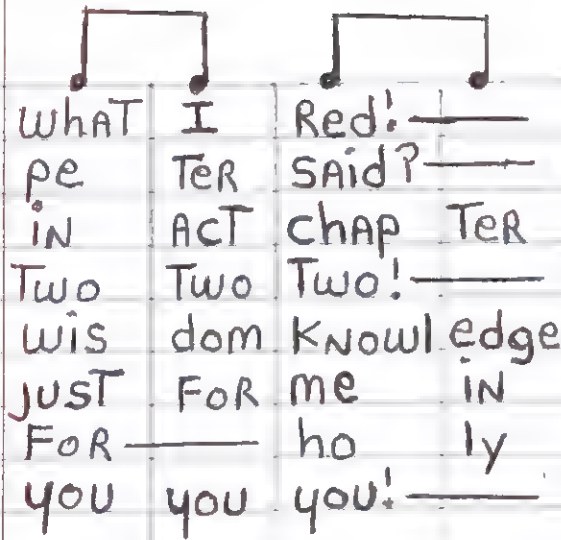 WhAT I Red!
pe TeR SAid?
iN ACT ChAp TeR
Two Two Two!
wis dom KNowl edge
jusT FoR me iN
FoR ho ly
you you you!